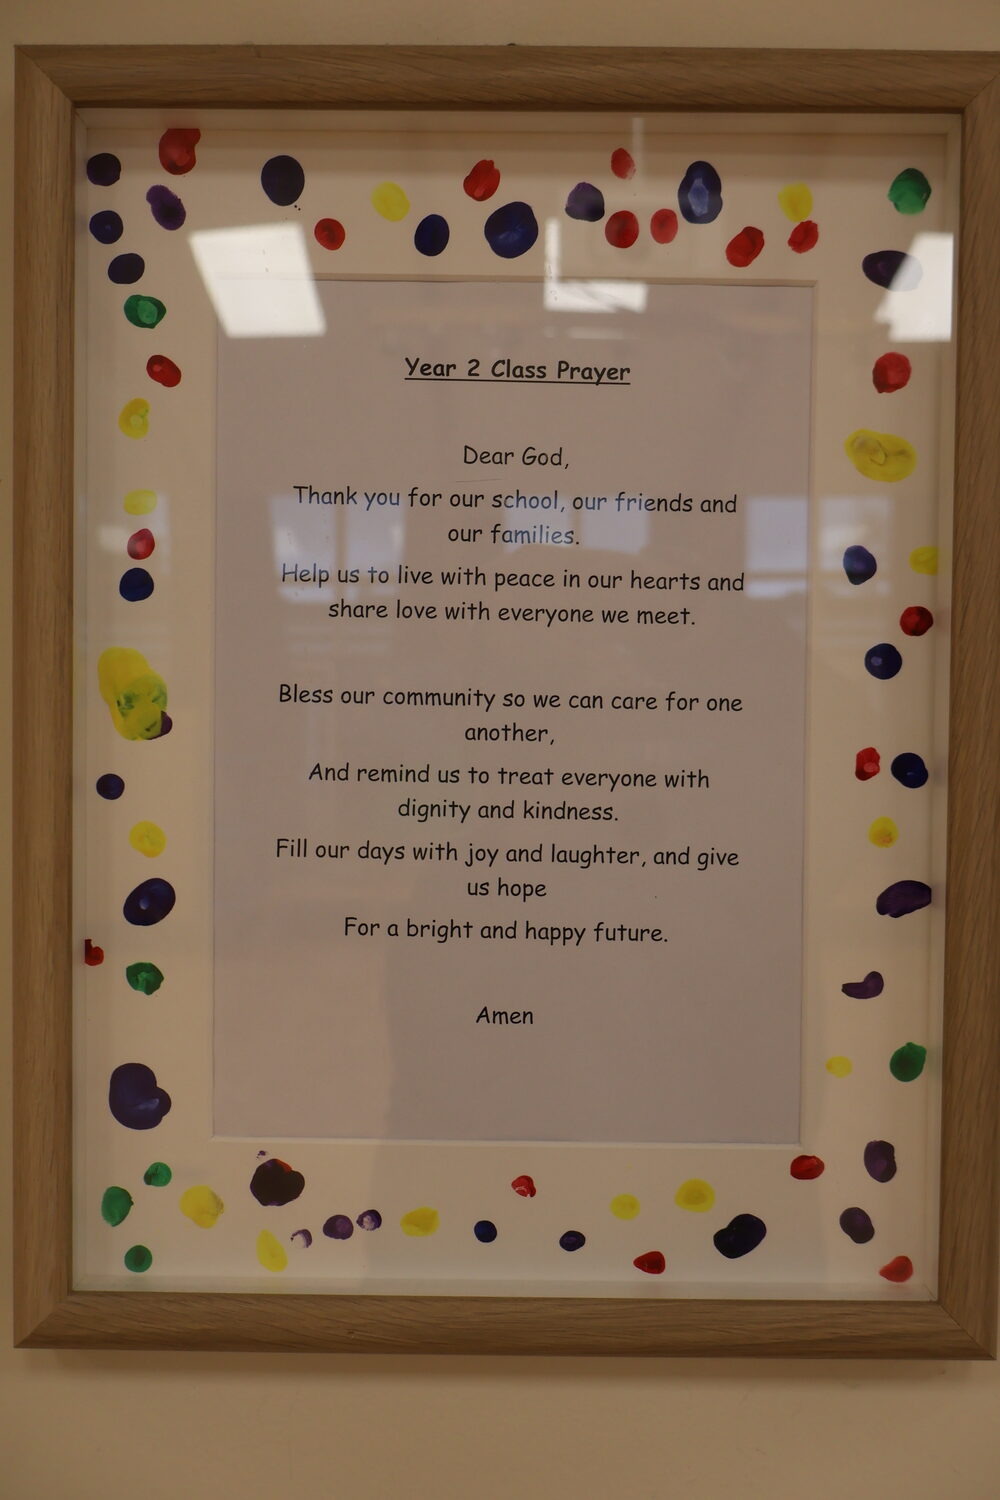 Year 2 Class Prayer
Dear God,
Thank you for our school, our friends and
our families.
Help us to live with peace in our hearts and
share love with everyone we meet.
Bless our community so we can care for one
another,
And remind us to treat everyone with
dignity and kindness.
Fill our days with joy and laughter, and give
us hope
For a bright and happy future.
Amen